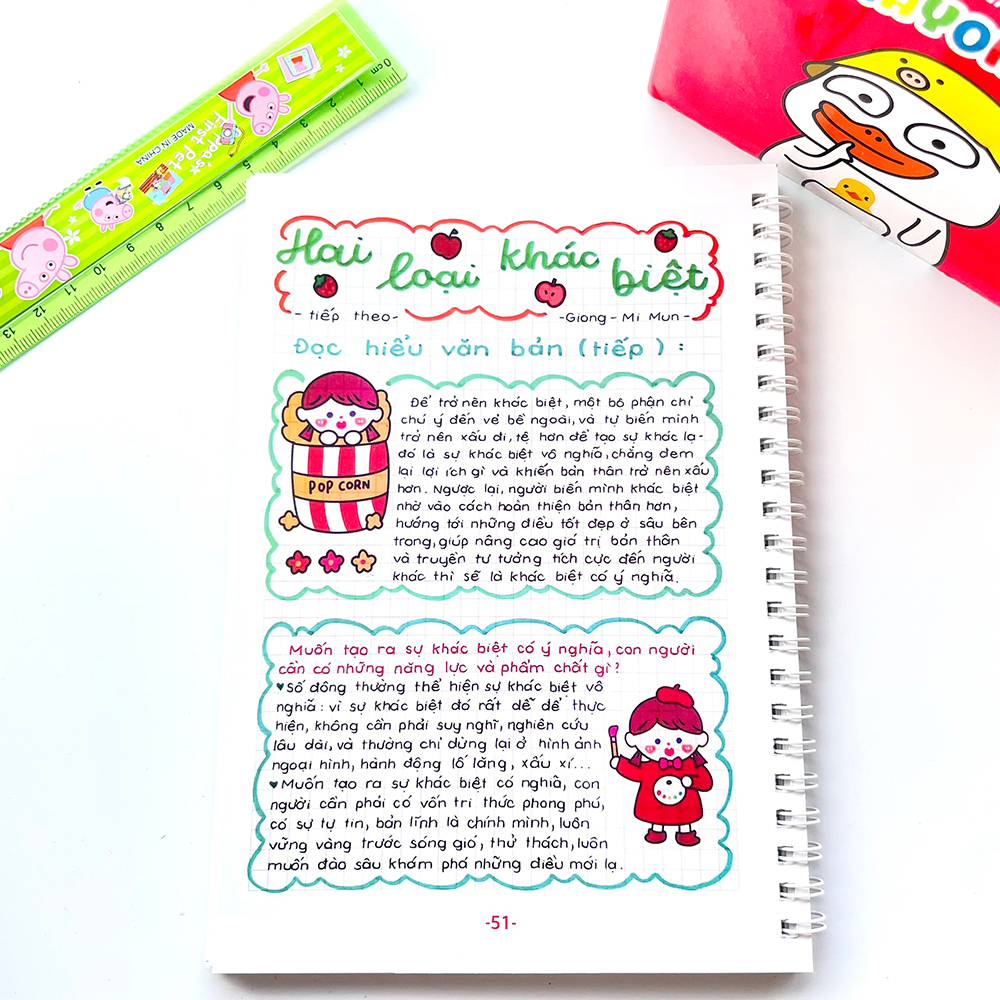 0 1cm
4 5 6 7 8 9 10 11 12 13
Peppa's
First Pet
MADE IN CHINA
Hai loại khác biệt
- tiếp theo-
-Giong - Mi Mun -
Đọc hiểu văn bản (tiếp) :
Để trở nên khác biệt, một bộ phận chỉ
chú ý đến vẻ bề ngoài, và tự biến mình
trở nên xấu đi, tệ hơn để tạo sự khác lạ-
đó là sự khác biệt vô nghĩa, chẳng đem
lại lợi ích gì và khiến bản thân trở nên xấu
hơn. Ngược lại, người biến mình khác biệt
nhờ vào cách hoàn thiện bản thân hơn,
hướng tới những điều tốt đẹp ở sâu bên
trong, giúp nâng cao giá trị bản thân
và truyền tư tưởng tích cực đến người
khác thì sẽ là khác biệt có ý nghĩa.
POP CORN
Muốn tạo ra sự khác biệt có ý nghĩa, con người
cần có những năng lực và phẩm chất gì?
♥Số đông thường thể hiện sự khác biệt vô
nghĩa: vì sự khác biệt đó rất dễ để thực
hiện, không cần phải suy nghĩ, nghiên cứu
lâu dài, và thường chỉ dừng lại ở hình ảnh
ngoại hình, hành động lố lăng, xấu xí...
♥Muốn tạo ra sự khác biệt có nghĩa, con
người cần phải có vốn tri thức phong phú,
có sự tự tin, bản lĩnh là chính mình, luôn
vững vàng trước sóng gió, thử thách, luôn
muốn đào sâu khám phá những điều mới lạ.
-51-